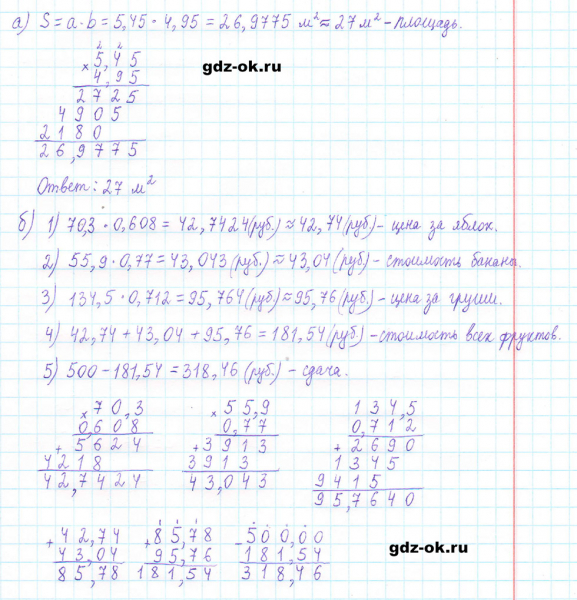 а) S = a · b = 5,45 · 4,95 = 26,9775 м² ≈ 27 м² - площадь.
2 2
× 5,45
4,95
2725
4905
2180
26,9775
gdz-ok.ru
Ответ: 27 м²
б) 1) 70,3 · 0,608 = 42,7424 (руб.) ≈ 42,74 (руб.) - цена за яблок.
2) 55,9 · 0,77 = 43,043 (руб.) ≈ 43,04 (руб.) - стоимость бананы.
3) 134,5 · 0,712 = 95,764 (руб.) ≈ 95,76 (руб.) - цена за груши.
4) 42,74 + 43,04 + 95,76 = 181,54 (руб.) - стоимость всех фруктов.
5) 500 - 181,54 = 318,46 (руб.) - сдача.
× 70,3 × 55,9 134,5
0,608 0,77 0,712
+ 5624 + 3913 + 2690
4218 3913 1345
42,7424 43,043 9415
95,7640
+ 42,74 + 85,78 - 500,00
43,04 95,76 181,54
85,78 181,54 318,46
gdz-ok.ru